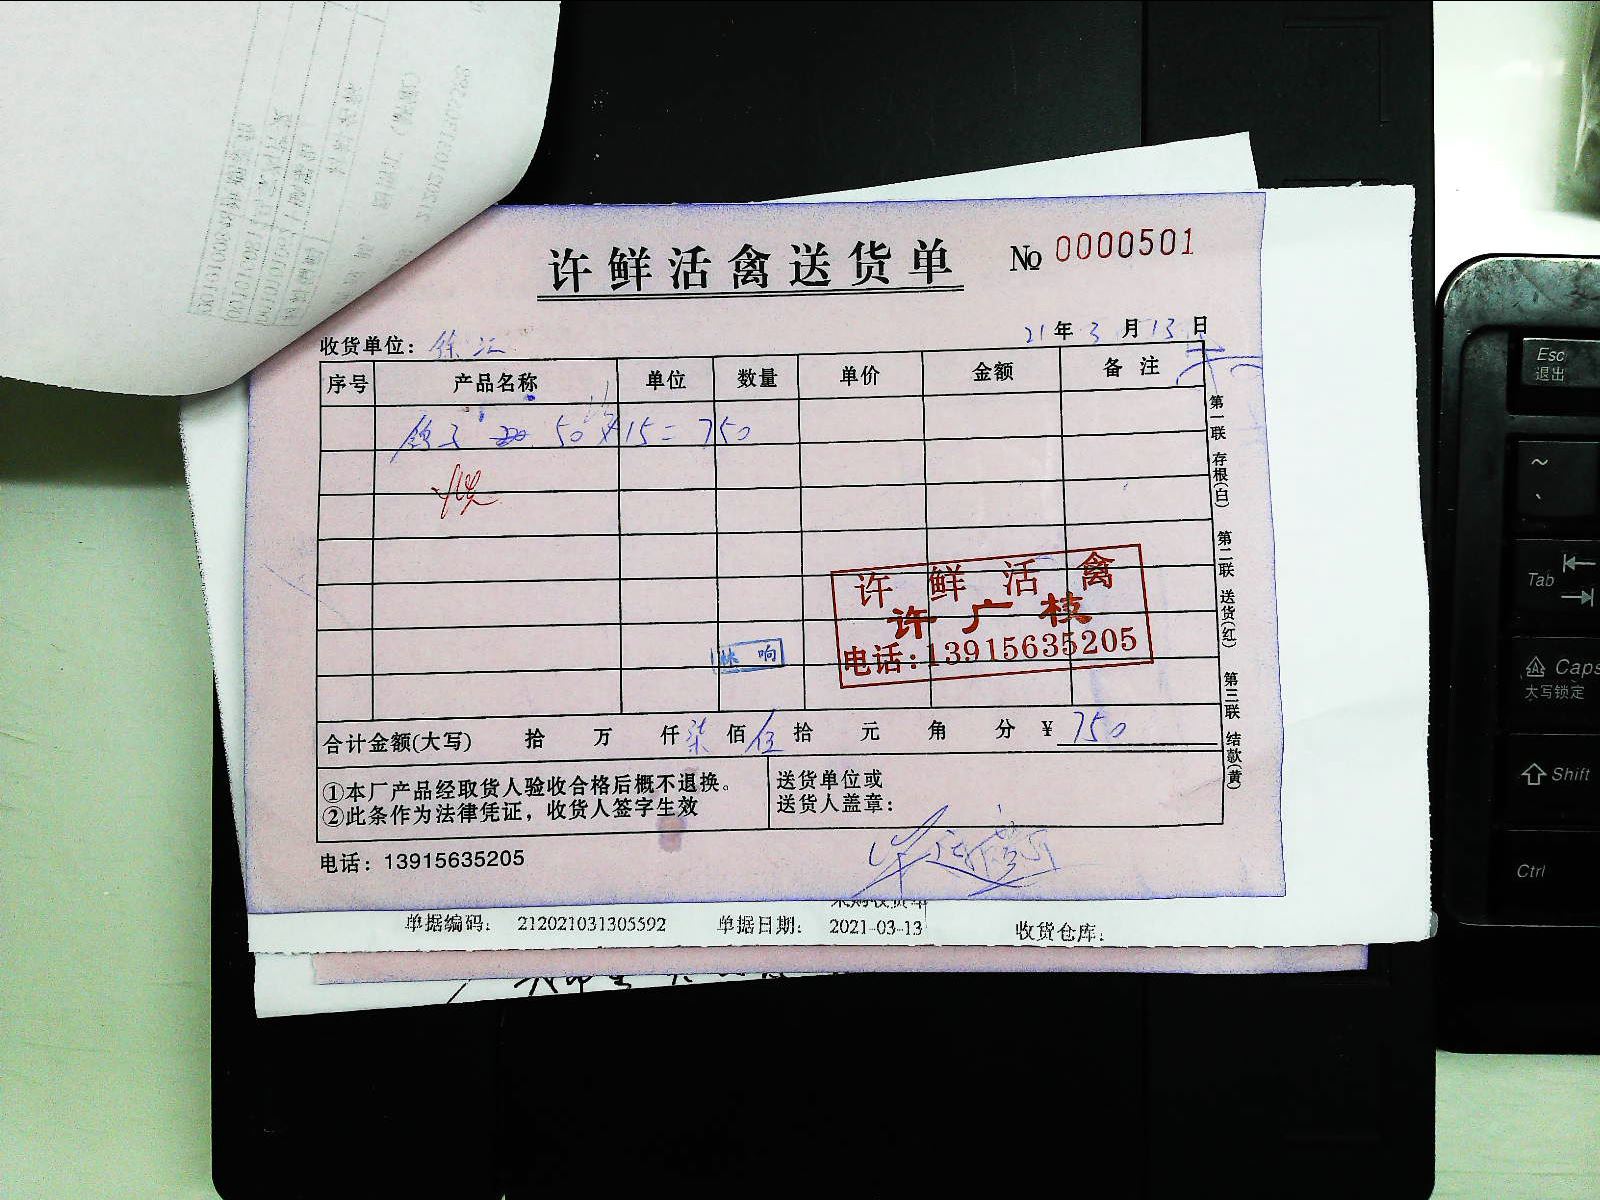 许鲜活禽送货单
№ 0000501
收货单位：徐汇
21年3月13日
序号 产品名称 单位 数量 单价 金额 备注
鸽子 50×15=750
许鲜活禽
许广枝
电话:13915635205
响
合计金额(大写) 拾 万 仟柒佰伍拾 元 角 分 ¥750
①本厂产品经取货人验收合格后概不退换。
②此条作为法律凭证，收货人签字生效
送货单位或
送货人盖章：
电话：13915635205
第一联 存根(白) 第二联 送货(红) 第三联 结款(黄)
单据编码： 212021031305592 单据日期： 2021-03-13 收货仓库：
Esc
退出
~
Tab
Caps
大写锁定
Shift
Ctrl